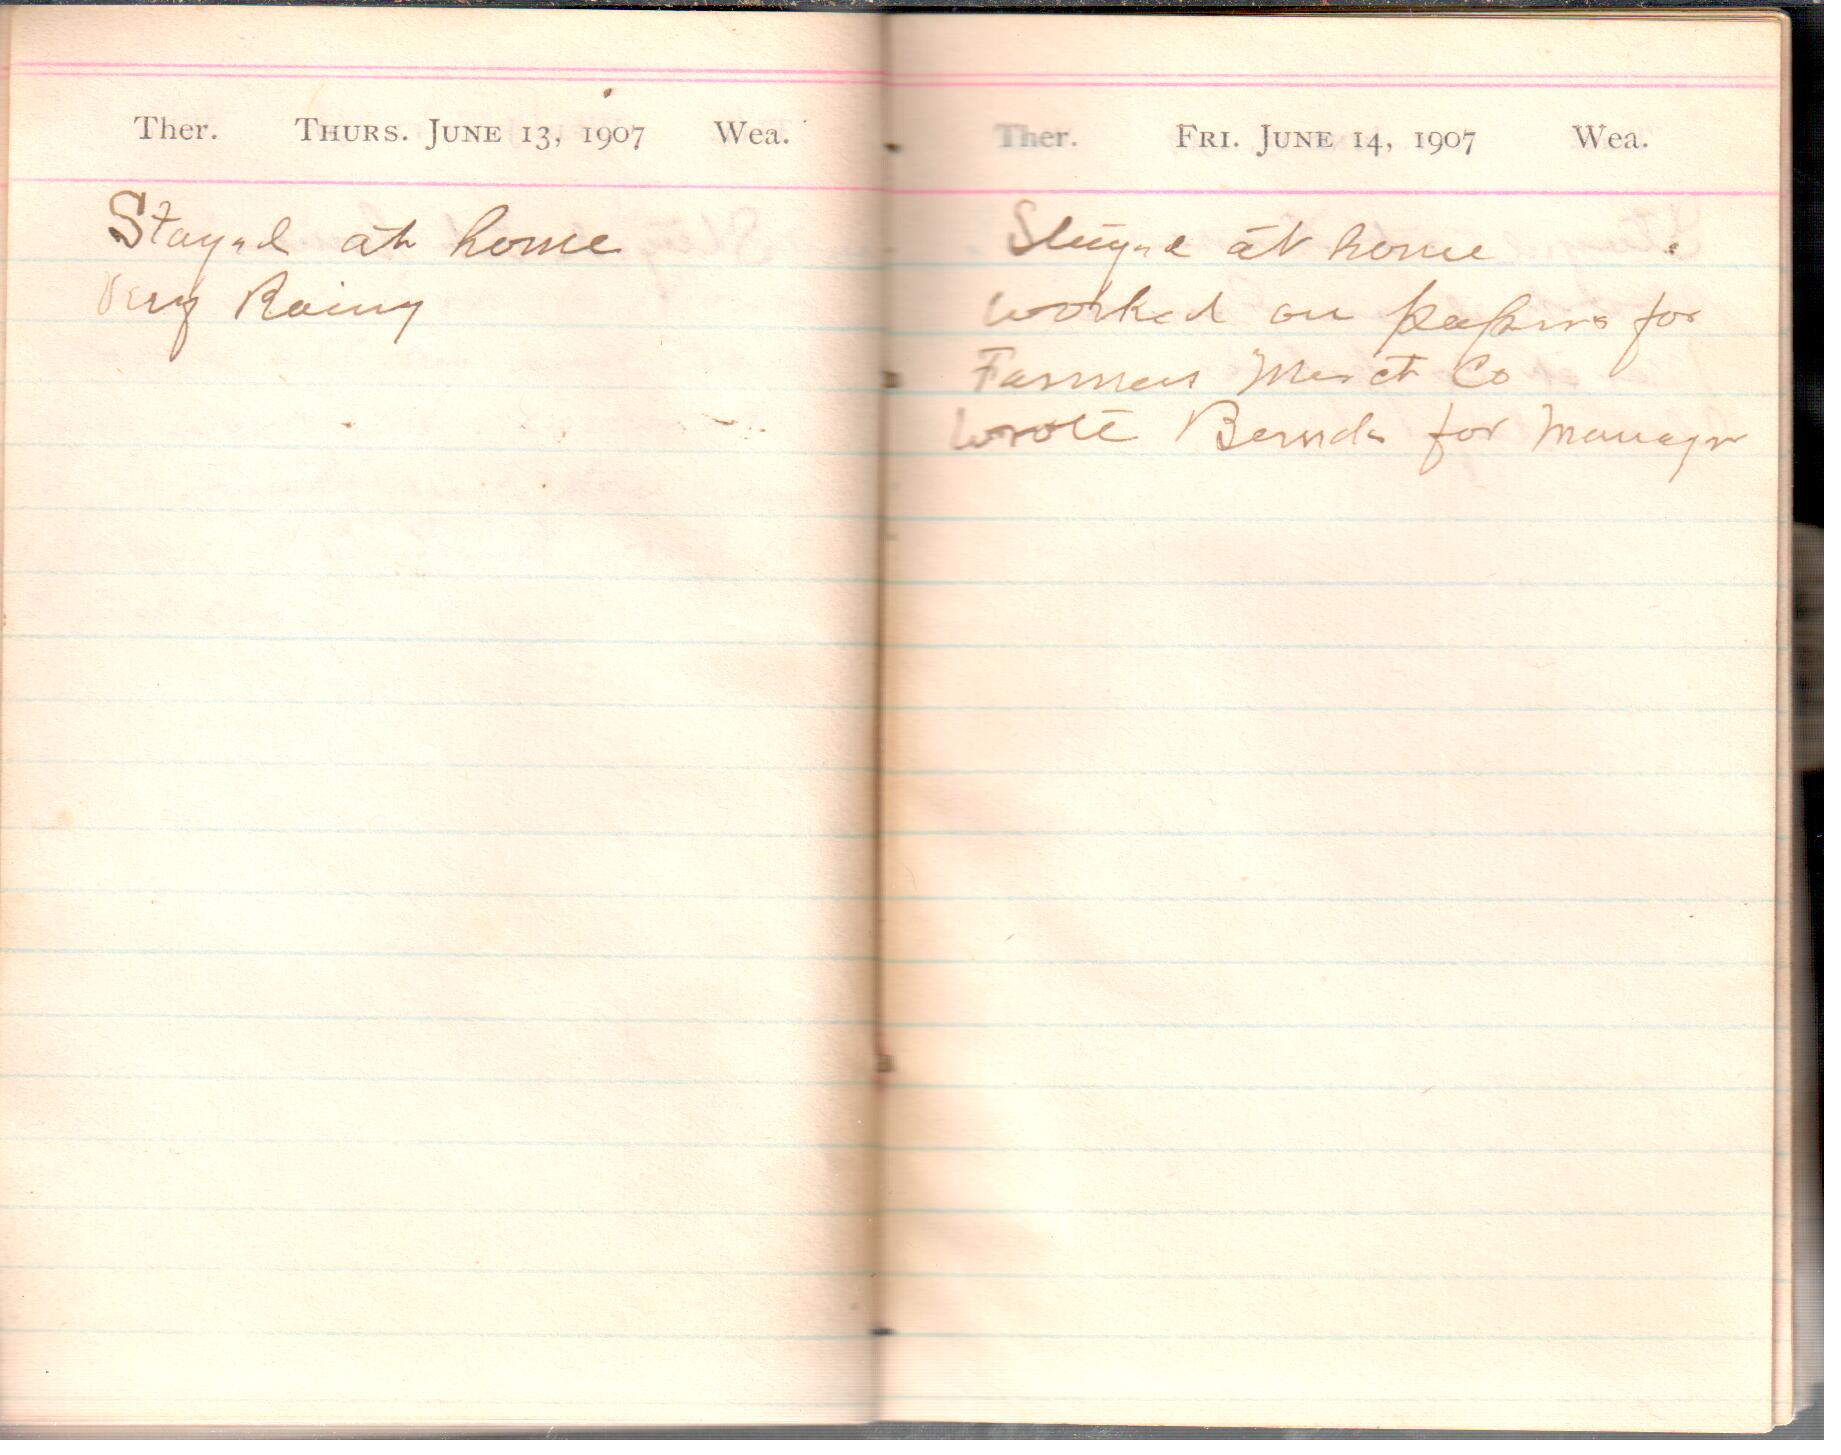 Ther. THURS. JUNE 13, 1907 Wea.
Stayed at home
Very Rainy
Ther. FRI. JUNE 14, 1907 Wea.
Stayed at home
worked on papers for
Farmers Merct Co
wrote for Manager